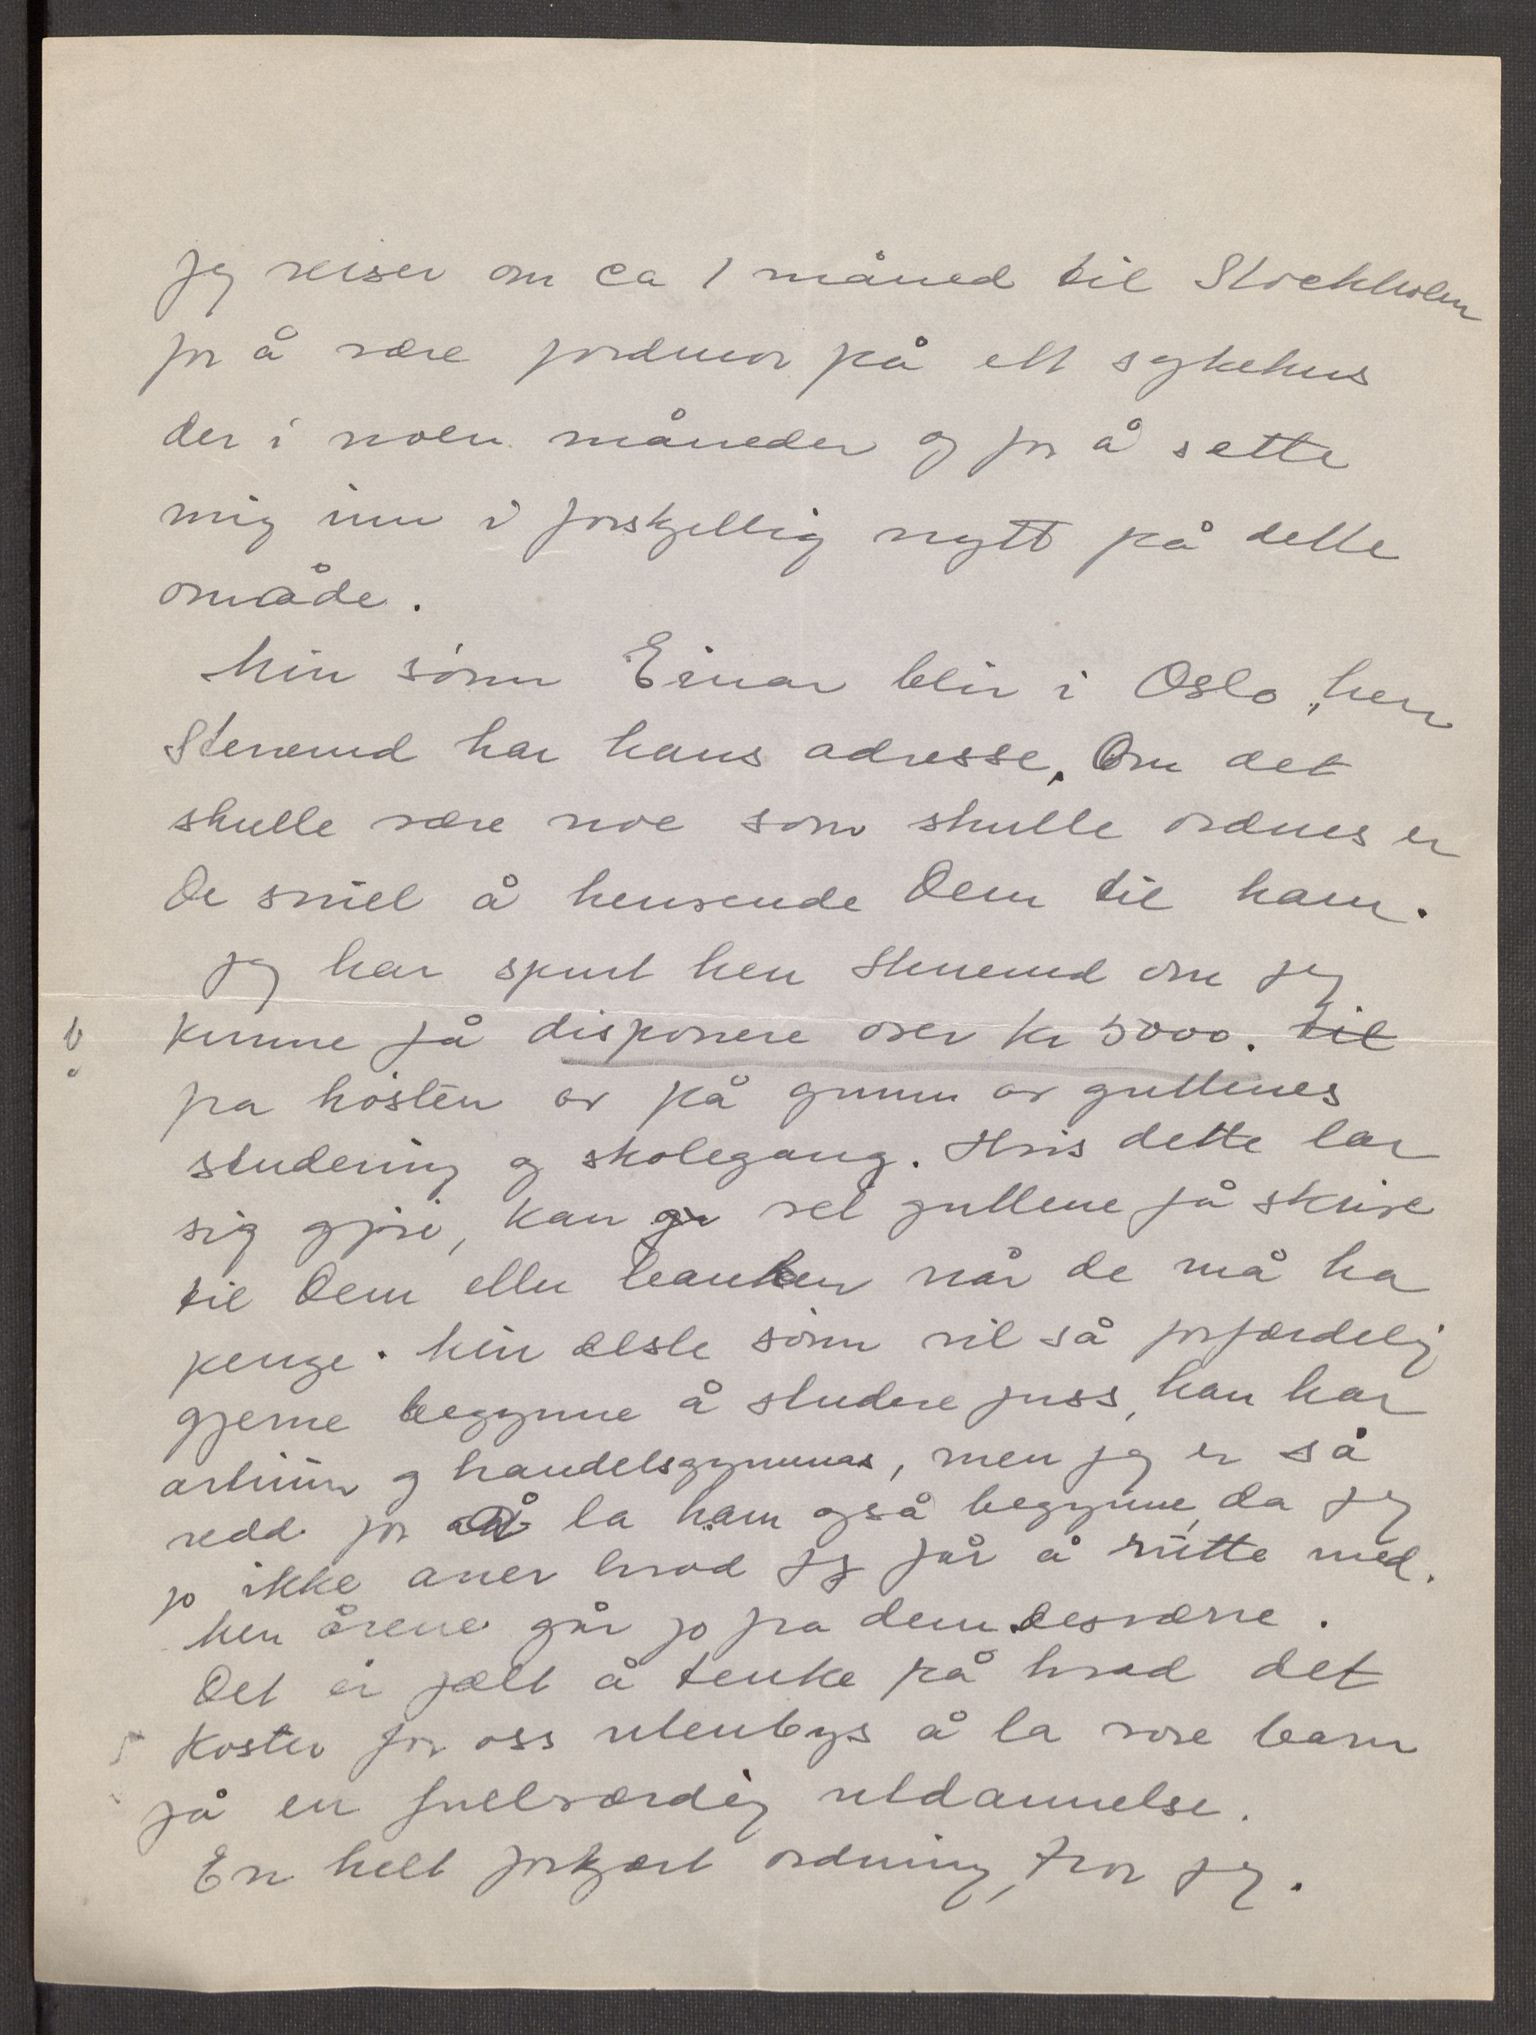 Jeg reiser om ca 1 måned til Stockholm
for å være jordmor på ett sykehus
der i noen måneder og for å sette
mig inn i forskjellig nytt på dette
område.
Min sönn Einar blir i Oslo, herr
Stenerud har hans adresse. Om det
skulle være noe som skulle ordnes er
De sniel å henvende Dem til ham.
Jeg har spurt herr Stenerud om jeg
kunne få disponere over kr 5000. til
fra hösten av på grunn av guttenes
studering og skolegang. Hvis dette lar
sig gjöre, kan vel guttene få skrive
til Dem eller banken når de må ha
penge. Min elste sönn vil så forfærdelig
gjerne begynne å studere juss, han har
artium og handelsgymnas, men jeg er så
redd for å la ham også begynne, da jeg
jo ikke aner hvad jeg får å rutte med.
Men årene går jo fra dem desværre.
Det er fælt å tenke på hvad det
koster for oss utenbys å la vore barn
få en fullværdig utdannelse.
En helt forkjært ordning, tror jeg.